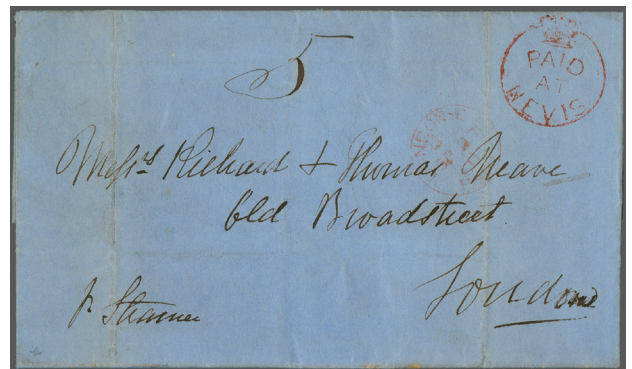 5
PAID
AT
NEVIS
Messrs Richard & Thomas Neave
Old Broadstreet.
London
pr Steamer